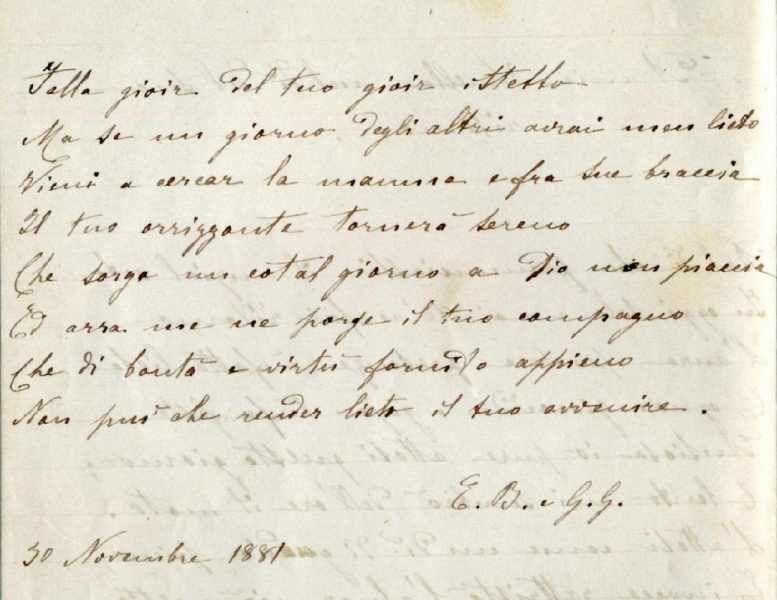 Fella gioir del tuo gioir istesso
Ma se un giorno degli altri avrai men lieto
Vieni a cercar la mamma e fra sue braccia
Il tuo orrizzonte tornerà sereno
Che sorga un cotal giorno a Dio non piaccia
Ed arra me ne porge il tuo compagno
Che di bontà e virtù fornito appieno
Non può che render lieto il tuo avvenire.
E. B. e G. G.
30 Novembre 1881